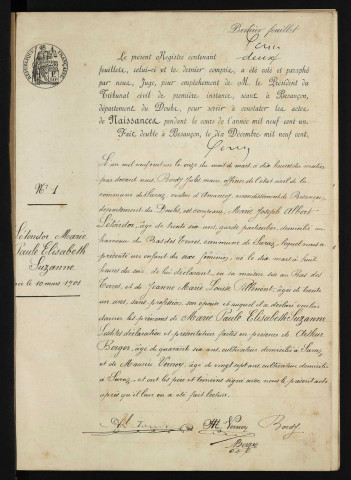 Premier feuillet
deux
Le présent Registre contenant
feuillets, celui-ci et le dernier compris, a été coté et paraphé
par nous, Juge, pour empêchement de M. le Président du
Tribunal civil de première instance, séant à Besançon,
département du Doubs, pour servir à constater les actes
de Naissances pendant le cours de l'année mil neuf cent un.
Fait double à Besançon, le dix Décembre mil neuf cent.
L'an mil neuf cent un le onze du mois de mars à dix heures du matin
par devant nous, Bordy Jules maire officier de l'état civil de la
commune de canton d'Amancey arrondissement de Besançon
département du Doubs, est comparu Marie Joseph Albert
âge de trente six ans, garde particulier, domicilié au
hameau du Bas des commune de lequel nous a
présenté un enfant du sexe féminin, né le dix mars à huit
heures du soir de lui déclarant, en sa maison sise au Bas des
et de Jeanne Marie Louise âgée de trente
un ans, sans profession son épouse et auquel il a déclaré vouloir
donner les prénoms de Marie Paule Elisabeth Suzanne
Lesdites déclaration et présentation faites en présence de Arthur
Berger, âgé de quarante six ans, cultivateur domicilié à
et de Maurice Vernoy, âge de vingt sept ans cultivateur domicilié
à et ont les père et témoins signé avec nous le présent acte
après qu'il leur en a été fait lecture.
N° 1
Marie
Paule Elisabeth
Suzanne
née le 10 mars 1901
Vernoy Bordy
Berger